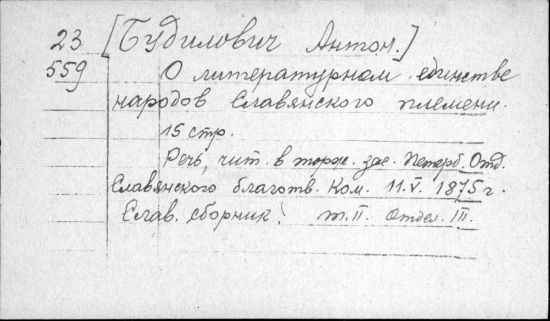 23 [Будилович Антон.]
559 О литературном единстве
народов Славянского племени.
15 стр.
Речь, чит. в торж. зас. Петерб. Отд.
Славянского благотв. Ком. 11.V. 1875 г.
Слав. сборник. т. II. Отдел. III.